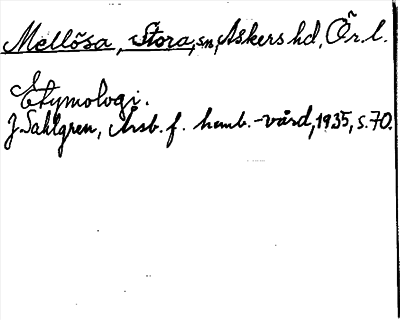 Mellösa, Stora, sn, Askers hd, Ör. l.
Etymologi.
J Sahlgren, Årsb. f. hemb.-vård, 1935, s. 70.